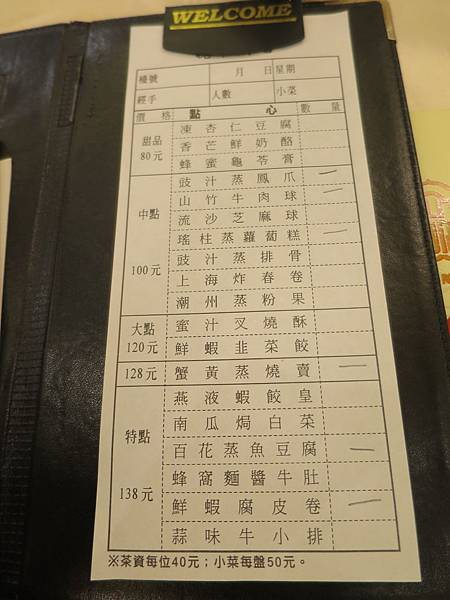 WELCOME
檯號 月 日 星期
經手 人數 小菜
價格 點心 數量
甜品 80元
凍杏仁豆腐
香芒鮮奶酪
蜂蜜龜苓膏
中點 100元
豉汁蒸鳳爪
山竹牛肉球
流沙芝麻球
瑤柱蒸蘿蔔糕
豉汁蒸排骨
上海炸春卷
潮州蒸粉果
大點 120元
蜜汁叉燒酥
鮮蝦韭菜餃
128元 蟹黃蒸燒賣
特點 138元
燕液蝦餃皇
南瓜焗白菜
百花蒸魚豆腐
蜂窩麵醬牛肚
鮮蝦腐皮卷
蒜味牛小排
※茶資每位40元；小菜每盤50元。